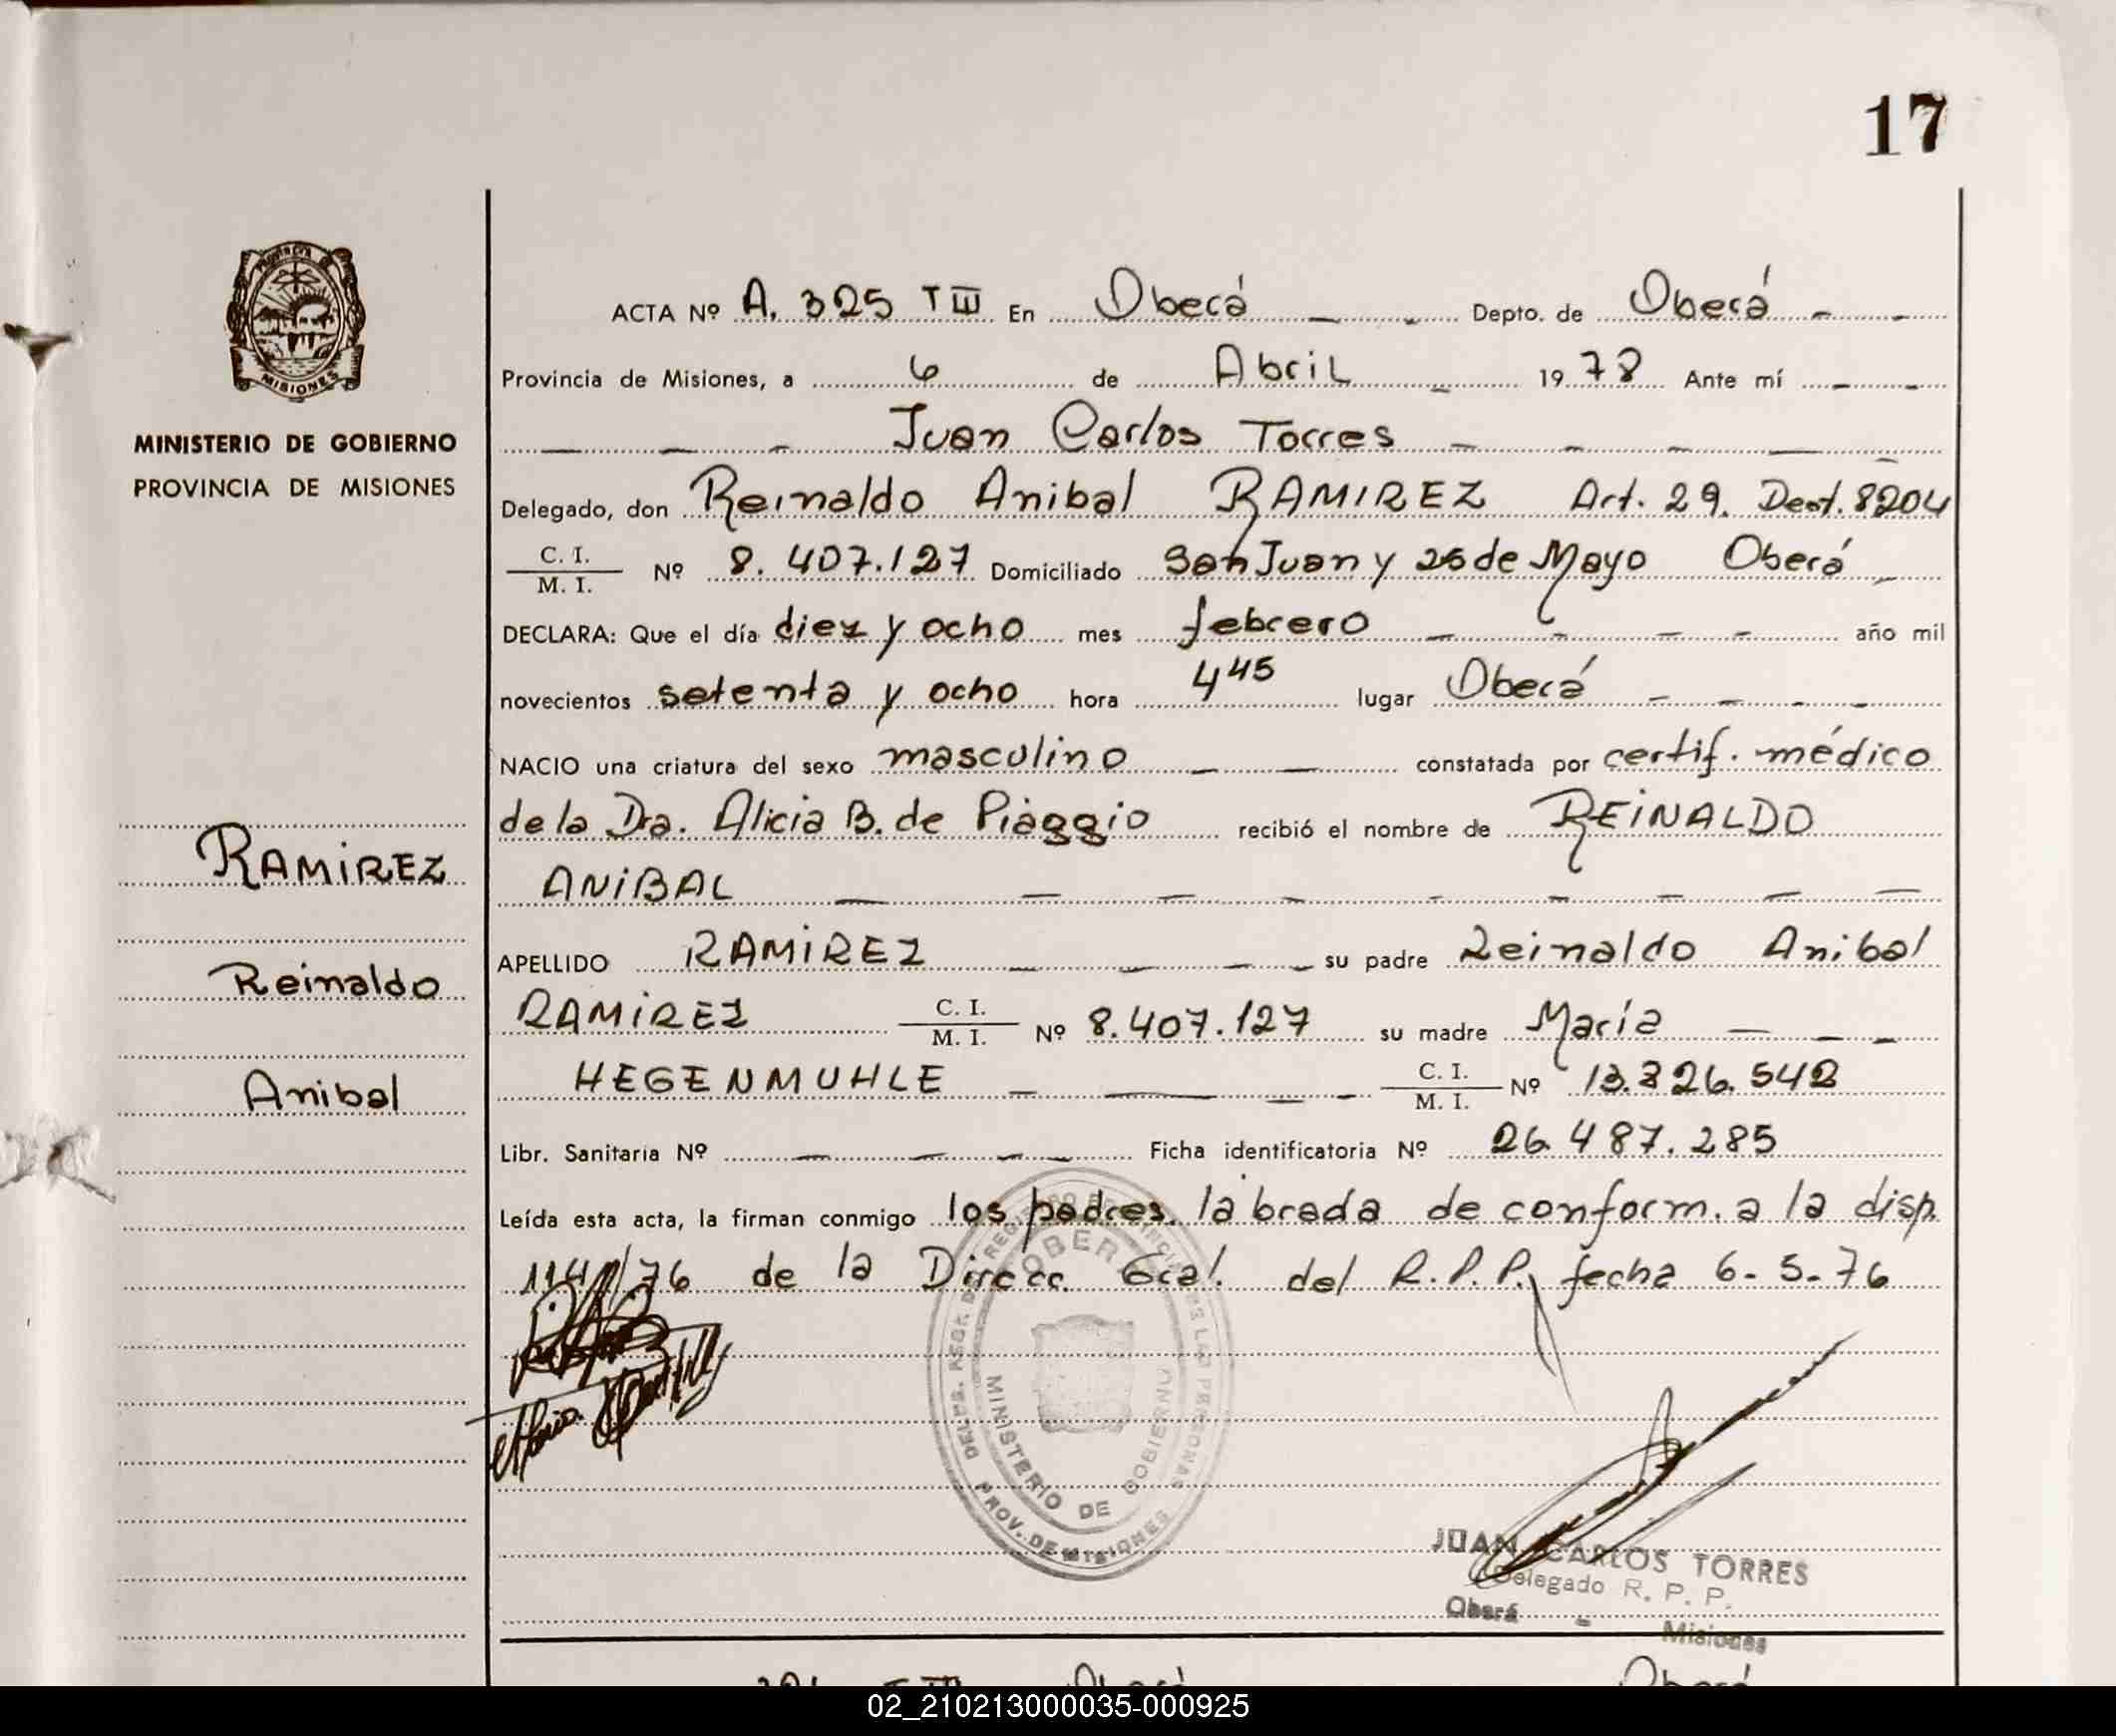 17
Provincia de
MISIONES
MINISTERIO DE GOBIERNO
PROVINCIA DE MISIONES
RAMIREZ
Reinaldo
Anibal
ACTA Nº A. 325 T III En Oberá Depto. de Oberá
Provincia de Misiones, a 6 de Abril 1978 Ante mí
Juan Carlos Torres
Delegado, don Reinaldo Anibal RAMIREZ Art. 29. Dect. 8204
C. I.
M. I. Nº 8.407.127 Domiciliado San Juan y 25 de Mayo Oberá
DECLARA: Que el día diez y ocho mes febrero año mil
novecientos setenta y ocho hora 4 45 lugar Oberá
NACIO una criatura del sexo masculino constatada por certif. médico
de la Dra. Alicia B. de Piaggio recibió el nombre de REINALDO
ANIBAL
APELLIDO RAMIREZ su padre Reinaldo Anibal
RAMIREZ C. I. M. I. Nº 8.407.127 su madre María
HEGENMUHLE C. I. M. I. Nº 13.326.542
Libr. Sanitaria Nº Ficha identificatoria Nº 26.487.285
Leída esta acta, la firman conmigo los padres. labrada de conform. a la disp.
/76 de la Direcc. Gral. del R.P.P. fecha 6-5-76
OBERA
MINISTERIO DE GOBIERNO
PROV. DE MISIONES
JUAN CARLOS TORRES
Delegado R. P. P.
Oberá - Misiones
02_210213000035-000925